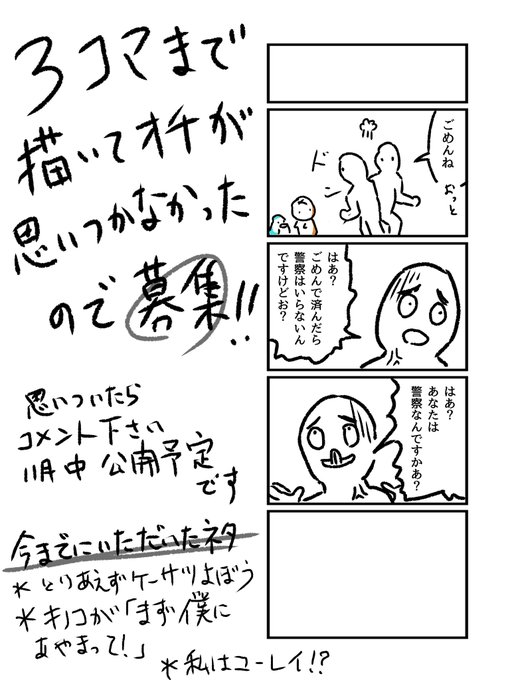 3コマまで
描いてオチが
思いつかなかった
ので募集!!
思いついたら
コメント下さい
11月中 公開予定
です
今までにいただいたネタ
*とりあえずケーサツよぼう
*キノコが「まず僕に
あやまって!」
*私はユーレイ!?
ごめんね
おっと
ドン
はあ?
ごめんで済んだら
警察はいらないん
ですけどお?
はあ?
あなたは
警察なんですかあ?